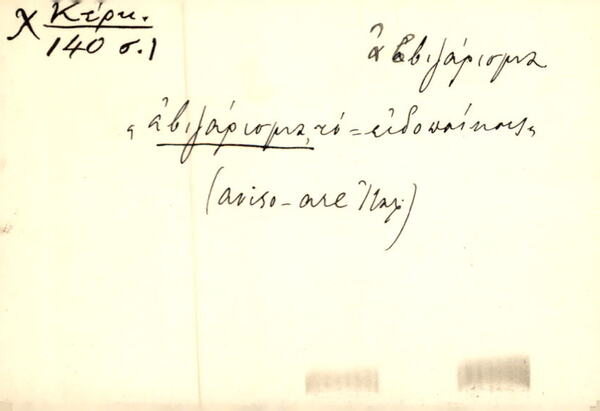 Χ Κέρκ.
140 σ.1
ἀβιζάρισμα
"ἀβιζάρισμα, τό = εἰδοποίησις"
(aviso-are Ἰταλ)